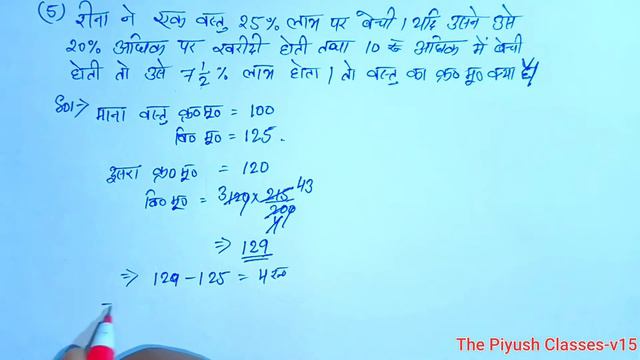 (5) रीना ने एक वस्तु 25% लाभ पर बेची। यदि उसने उसे
20% अधिक पर खरीदी होती तथा 10 रू अधिक में बेची
होती तो उसे 7 1/2 % लाभ होता। तो वस्तु का क्र० मू० क्या है
Sol⇒ माना वस्तु क्र० मू० = 100
वि० मू० = 125.
दूसरा क्र० मू० = 120
वि० मू० = 3 120 × 215/200 43
⇒ 129
⇒ 129 - 125 = 4 रू०
The Piyush Classes-v15